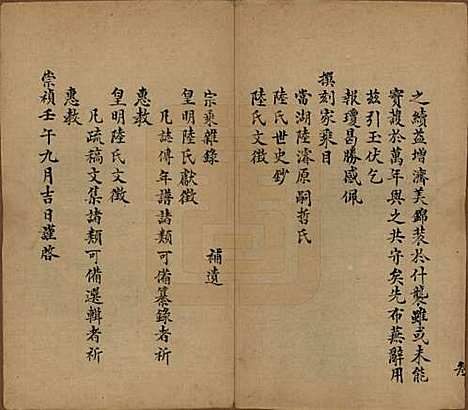 之績益增濟美鄒裴於什襲雖或未能
寶搜於萬年與之共守矣先布蕪辭用
茲引玉伏乞
報瓊曷勝感佩
撰刻家乘目
當湖陸濬原嗣哲氏
陸氏世史鈔
陸氏文徵
宗乘雜錄 補遺
皇明陸氏獻徵
凡誌傳年譜諸類可備纂錄者祈
惠教
皇明陸氏文徵
凡疏稿文集諸類可備選輯者祈
惠教
崇禎壬午九月吉日謹啓